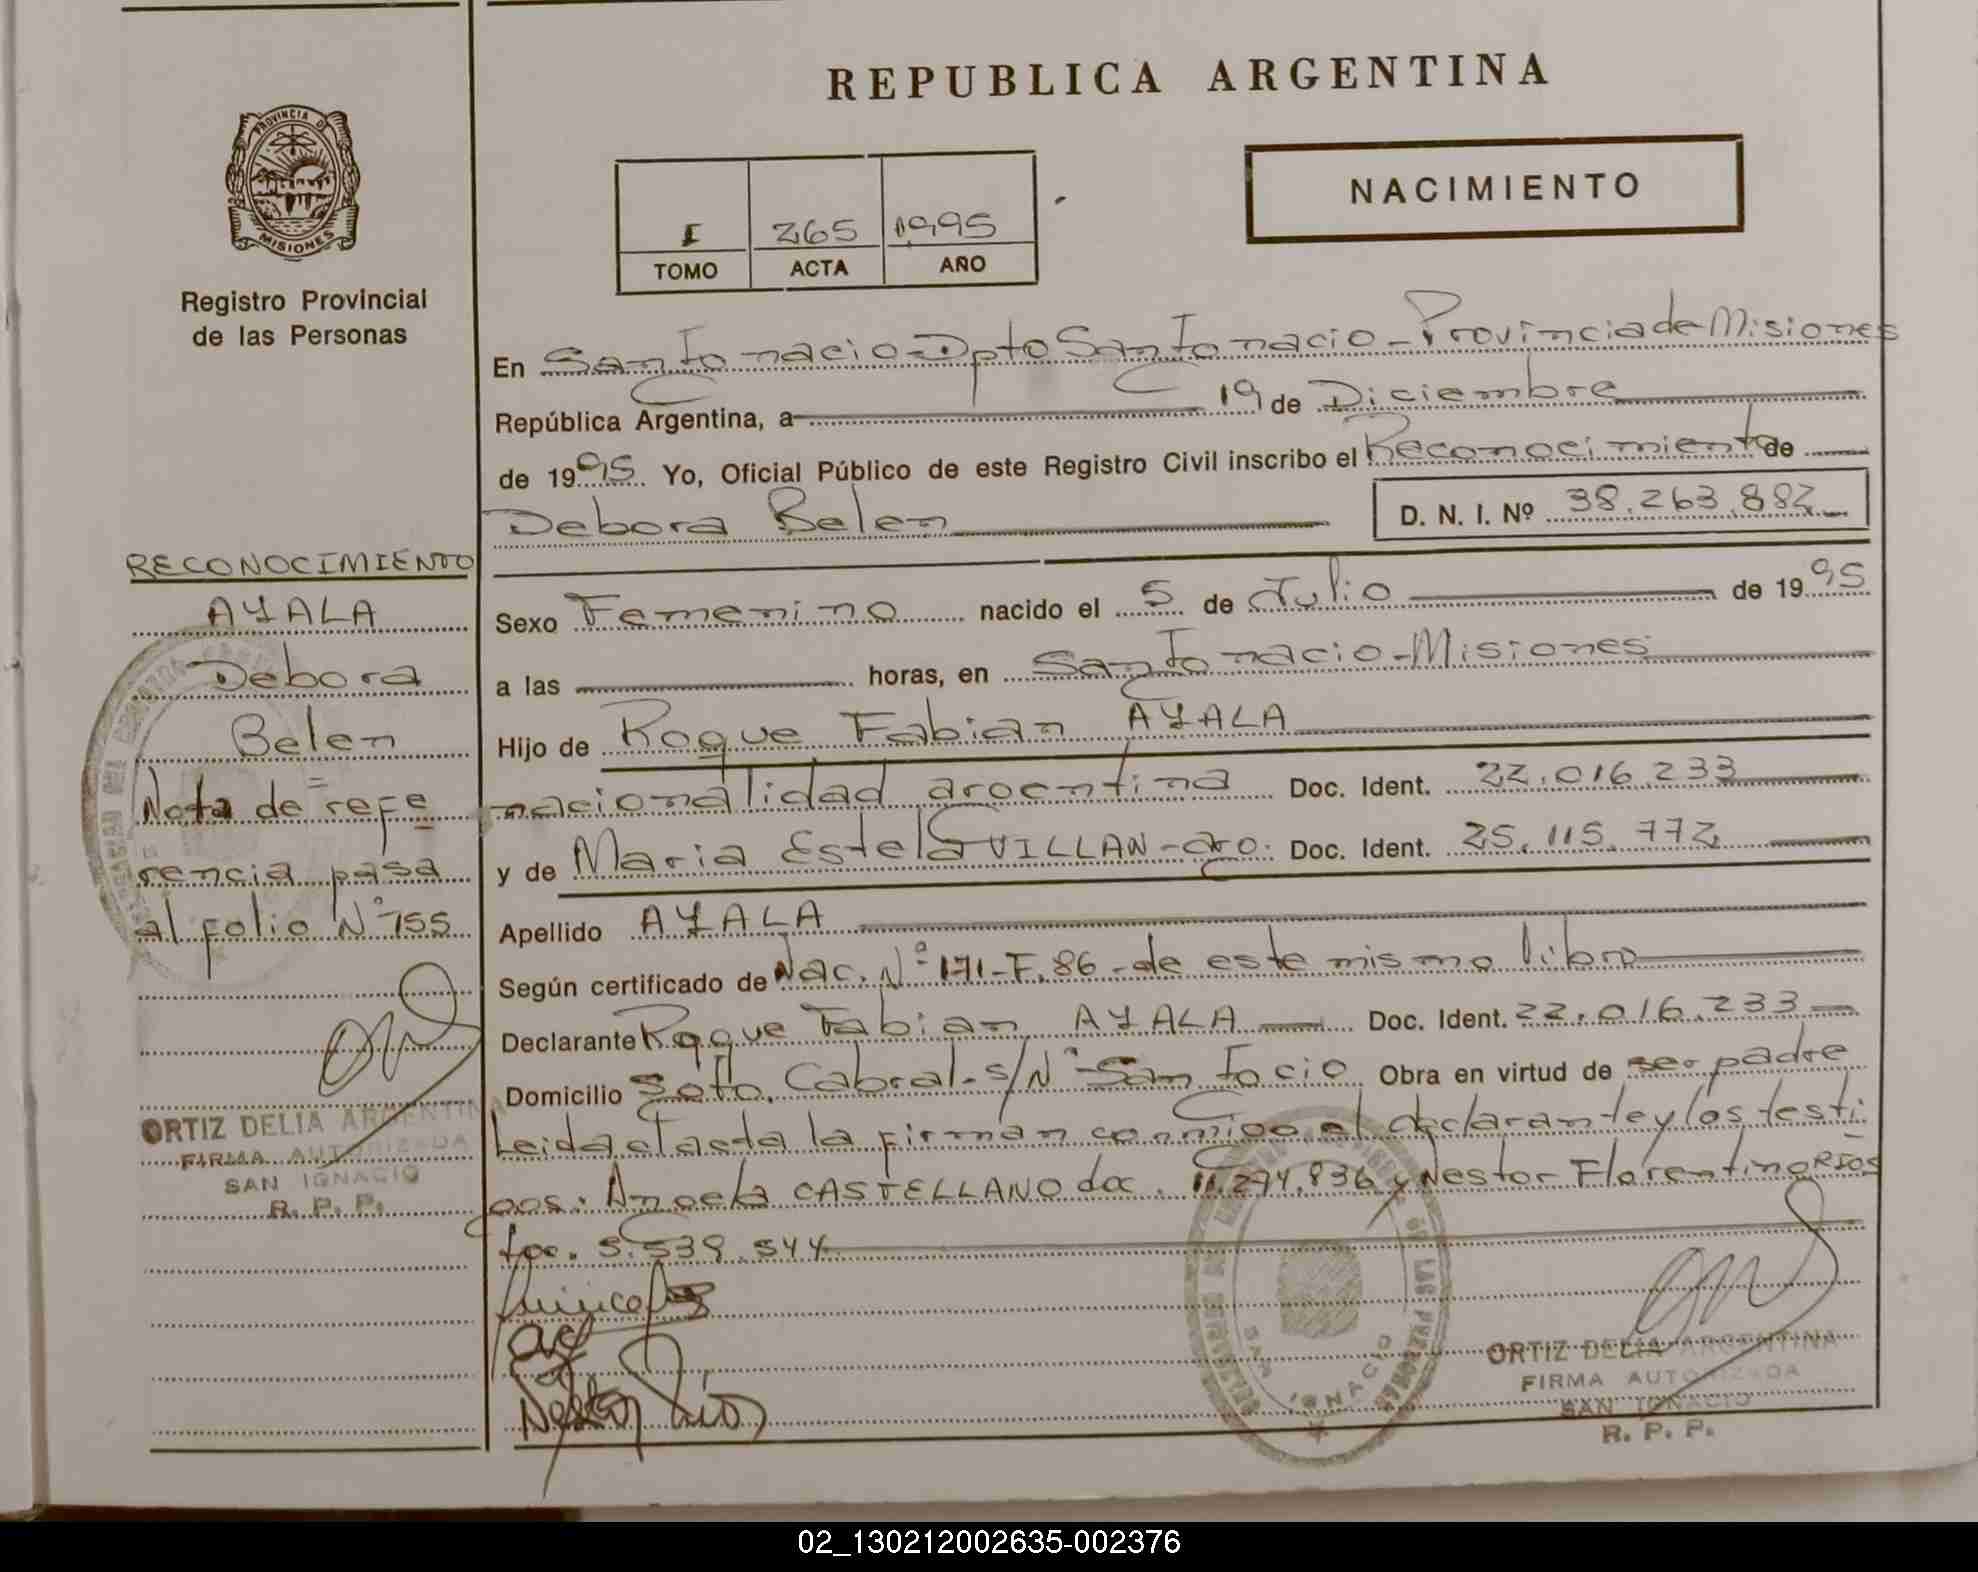 REPUBLICA ARGENTINA
NACIMIENTO
I 265 1995
TOMO ACTA AÑO
PROVINCIA DE
MISIONES
Registro Provincial
de las Personas
En San Ignacio-Dpto San Ignacio-Provincia de Misiones
República Argentina, a 19 de Diciembre
de 1995 Yo, Oficial Público de este Registro Civil inscribo el Reconocimiento de
Debora Belen D. N. I. Nº 38.263.882
RECONOCIMIENTO
AYALA
Debora
Belen
Nota de refe
rencia pasa
al folio Nº 155
ORTIZ DELIA ARGENTINA
FIRMA AUTORIZADA
SAN IGNACIO
R. P. P.
Sexo Femenino nacido el 5 de Julio de 1995
a las horas, en San Ignacio-Misiones
Hijo de Roque Fabian AYALA
nacionalidad argentina Doc. Ident. 22.016.233
y de Maria Estela VILLAN-arg. Doc. Ident. 25.115.772
Apellido AYALA
Según certificado de Nac. Nº 171-F.86-de este mismo libro
Declarante Roque Fabian AYALA Doc. Ident. 22.016.233
Domicilio Sgto. Cabral-s/Nº-San Igcio Obra en virtud de ser padre
Leida el acta la firman conmigo el declarante y los testi
gos: Angela CASTELLANO doc. 11.274.836 y Nestor Florentino RIOS
doc. 5.539.544
Nestor Rios
SAN IGNACIO
ORTIZ DELIA ARGENTINA
FIRMA AUTORIZADA
SAN IGNACIO
R. P. P.
02_130212002635-002376